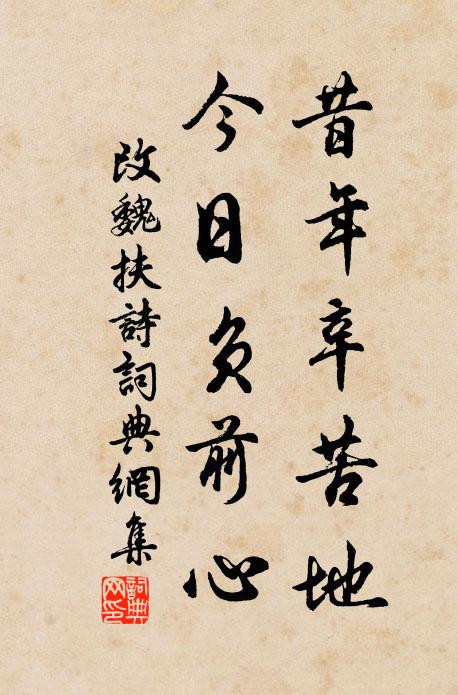 昔年辛苦地
今日負前心
改魏扶詩詞典網集
詞典